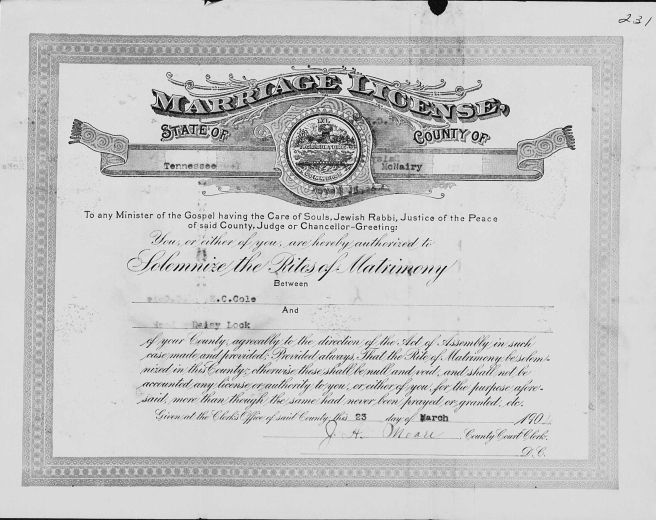 231
MARRIAGE LICENSE,
STATE OF COUNTY OF
Tennessee McNairy
To any Minister of the Gospel having the Care of Souls, Jewish Rabbi, Justice of the Peace
of said County, Judge or Chancellor-Greeting:
You, or either of you, are hereby authorized to
Solemnize the Rites of Matrimony
Between
E.C.Cole
And
Daisy Lock
of your County, agreeably to the direction of the Act of Assembly in such
case made and provided; Provided always, That the Rite of Matrimony be solem-
nized in this County; otherwise these shall be null and void, and shall not be
accounted any license or authority to you, or either of you, for the purpose afore-
said, more than though the same had never been prayed or granted, etc.
Given at the Clerk's Office of said County this 23 day of March 190
J. H. County Court Clerk.
D. C.